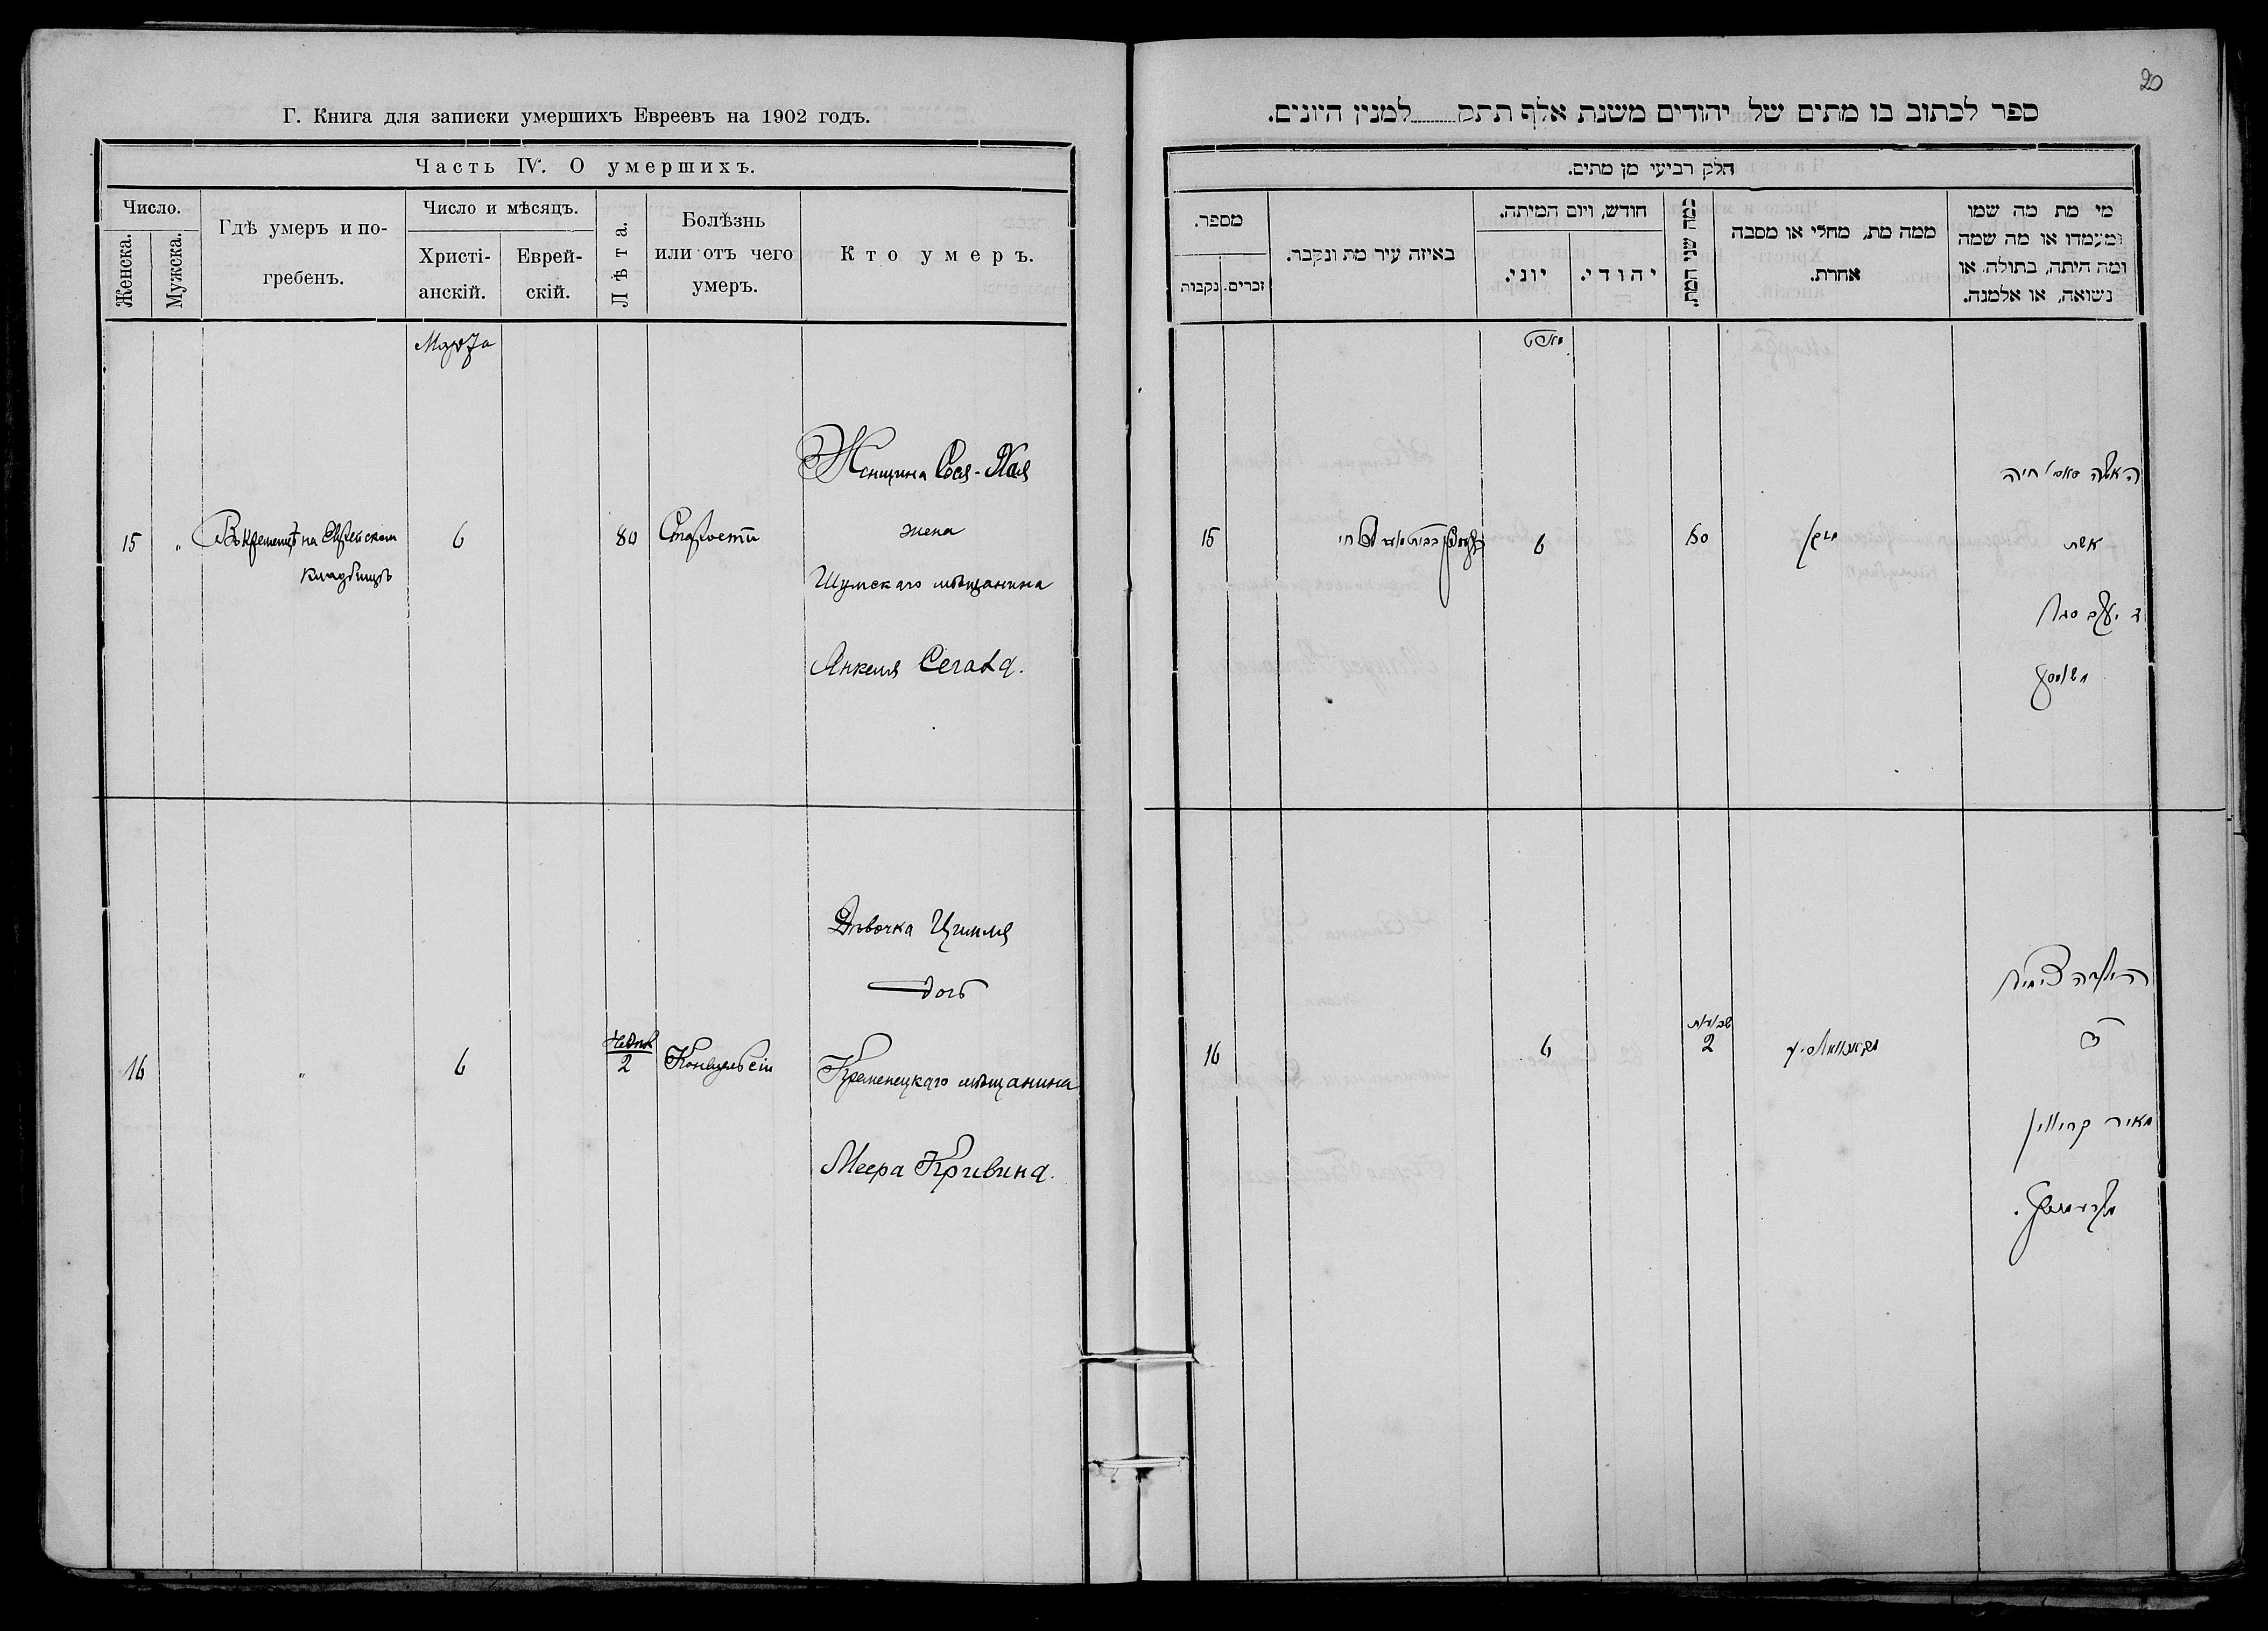 Г. Книга для записки умершихъ Евреевъ на 1902 годъ.
Часть IV. О умершихъ.
Число.
Женска.
Мужска.
Гдѣ умеръ и по-
гребенъ.
Число и мѣсяцъ.
Христі-
анскій.
Еврей-
скій.
Лѣта.
Болѣзнь
или отъ чего
умеръ.
Кто умеръ.
Марта
15
"
Въ Кременцѣ на Еврейском
кладбищѣ
6
80
Старости
Женщина Рося-Хая
жена
Шумскаго мѣщанина
Янкеля Сегала.
16
"
6
Недѣл
2
Конвульсіи
Дѣвочка Цимля
дочь
Кременецкаго мѣщанина
Меера Кривина.
20
ספר לכתוב בו מתים של יהודים משנת אלף תתק למנין היונים.
חלק רביעי מן מתים.
מספר.
נקבות
זכרים.
באיזה עיר מת ונקבר.
חודש, ויום המיתה.
יוני.
יהודי.
כמה שני המת.
ממה מת, מחלי או מסבה
אחרת.
מי מת מה שמו
ומעמדו או מה שמה
ומה היתה, בתולה או
נשואה, או אלמנה.
מארט
15
6
80
האשה חיה
אשת
16
6
שבועות
2
מאיר קריווין